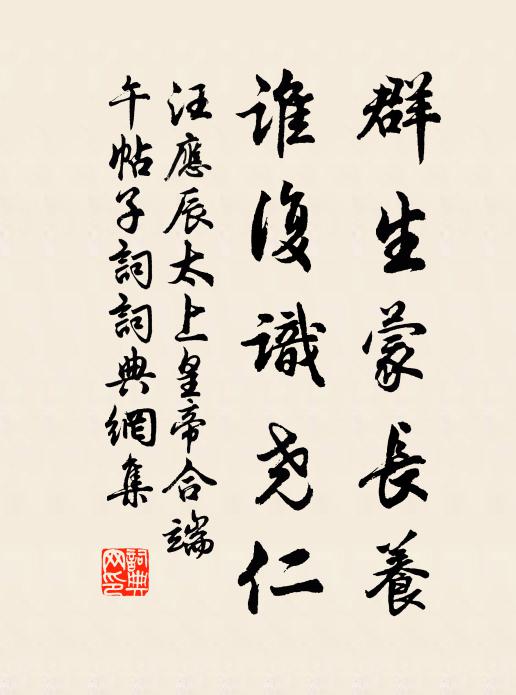 群生蒙長養
誰復識尧仁
汪應辰太上皇帝合端
午帖子詞詞典網集
詞典
网印